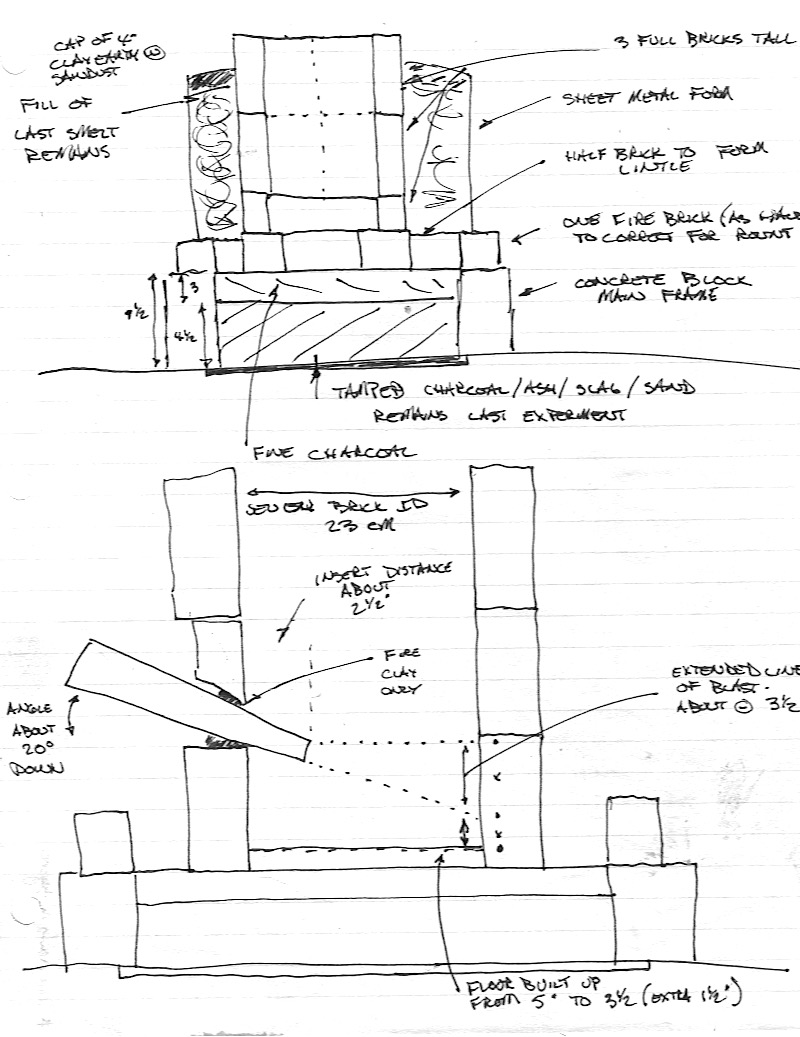 CAP OF 4"
CLAY EARTH @
SANDUST
FILL OF
LAST SMELT
REMAINS
3 FULL BRICKS TALL
SHEET METAL FORM
HALF BRICK TO FORM
LINTLE
ONE FIRE BRICK (AS
TO CORRECT FOR ROUNT
CONCRETE BLOCK
MAIN FRAME
3
9 1/2
4 1/2
TAMPED CHARCOAL/ASH/SLAG/SAND
REMAINS LAST EXPERMENT
FINE CHARCOAL
SEVEN BRICK ID
23 CM
INSERT DISTANCE
ABOUT
2 1/2"
FIRE
CLAY
ONLY
EXTENDED LINE
OF BLAST.
ABOUT @ 3 1/2
ANGLE
ABOUT
20°
DOWN
FLOOR BUILT UP
FROM 5" TO 3 1/2 (EXTRA 1 1/2")